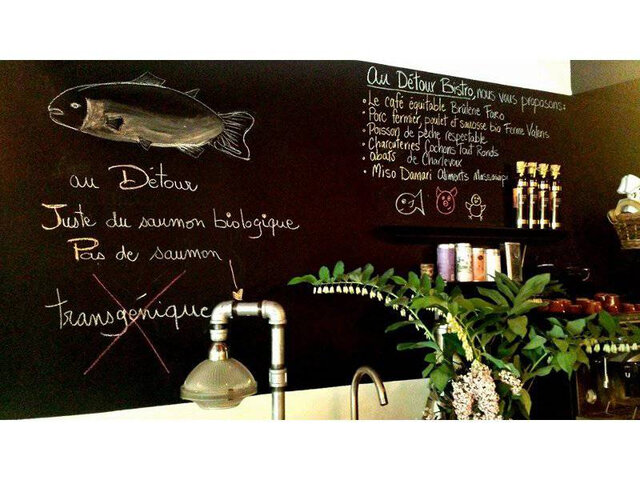 au Détour
Juste du saumon biologique
Pas de saumon
transgénique
au Détour Bistro, nous vous proposons:
• Le café équitable Brûlerie Faro
• Porc fermier, poulet et saucisse bio Ferme Valens
• Poisson de pêche respectable
• Charcuteries Cochons Tout Ronds
• abats de Charlevoix
• Miso Damari Aliments Massawipi